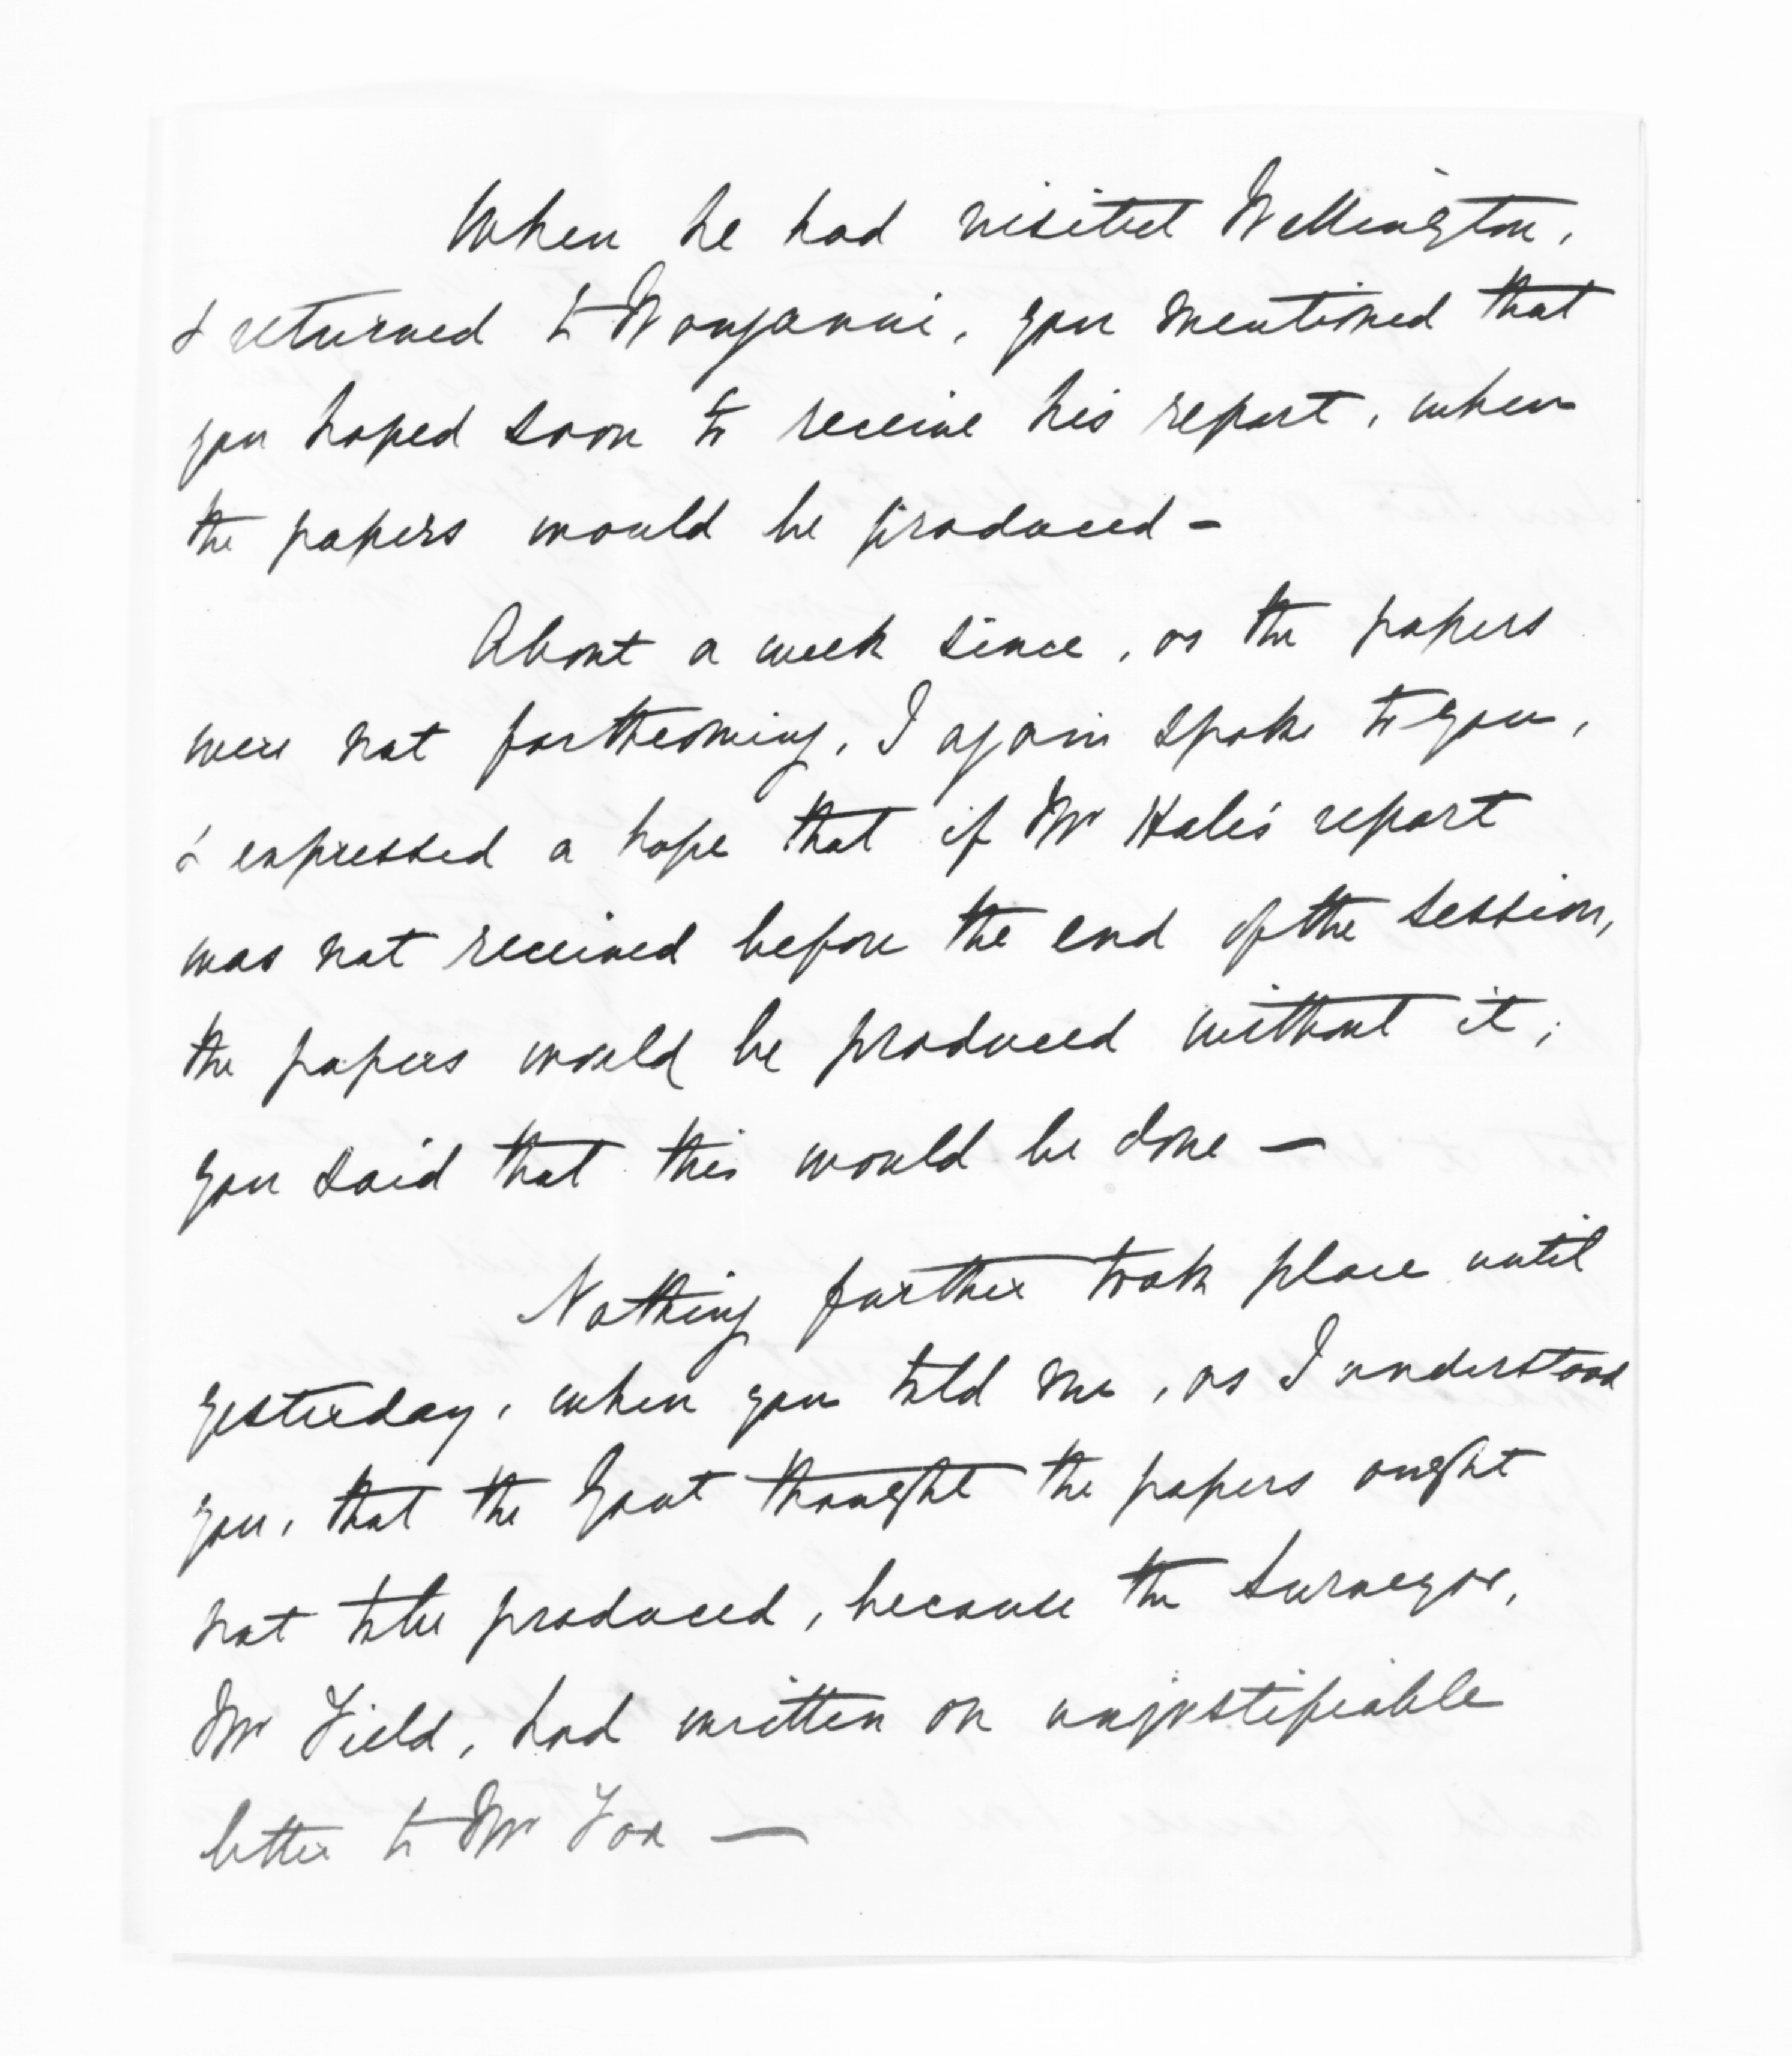 When he had visited Wellington,
& returned to Wanganui, you mentioned that
you hoped soon to receive his report, when
the papers would be produced -
About a week since, as the papers
were not forthcoming, I again spoke to you,
& expressed a hope that if Mr Hales' report
was not received before the end of the session,
the papers would be produced without it;
you said that this would be done -
Nothing further took place until
yesterday, when you told me, as I understood
you, that the Govt thought the papers ought
not to be produced, because the Surveyor,
Mr Field, had written an unjustifiable
letter to Mr Fox -